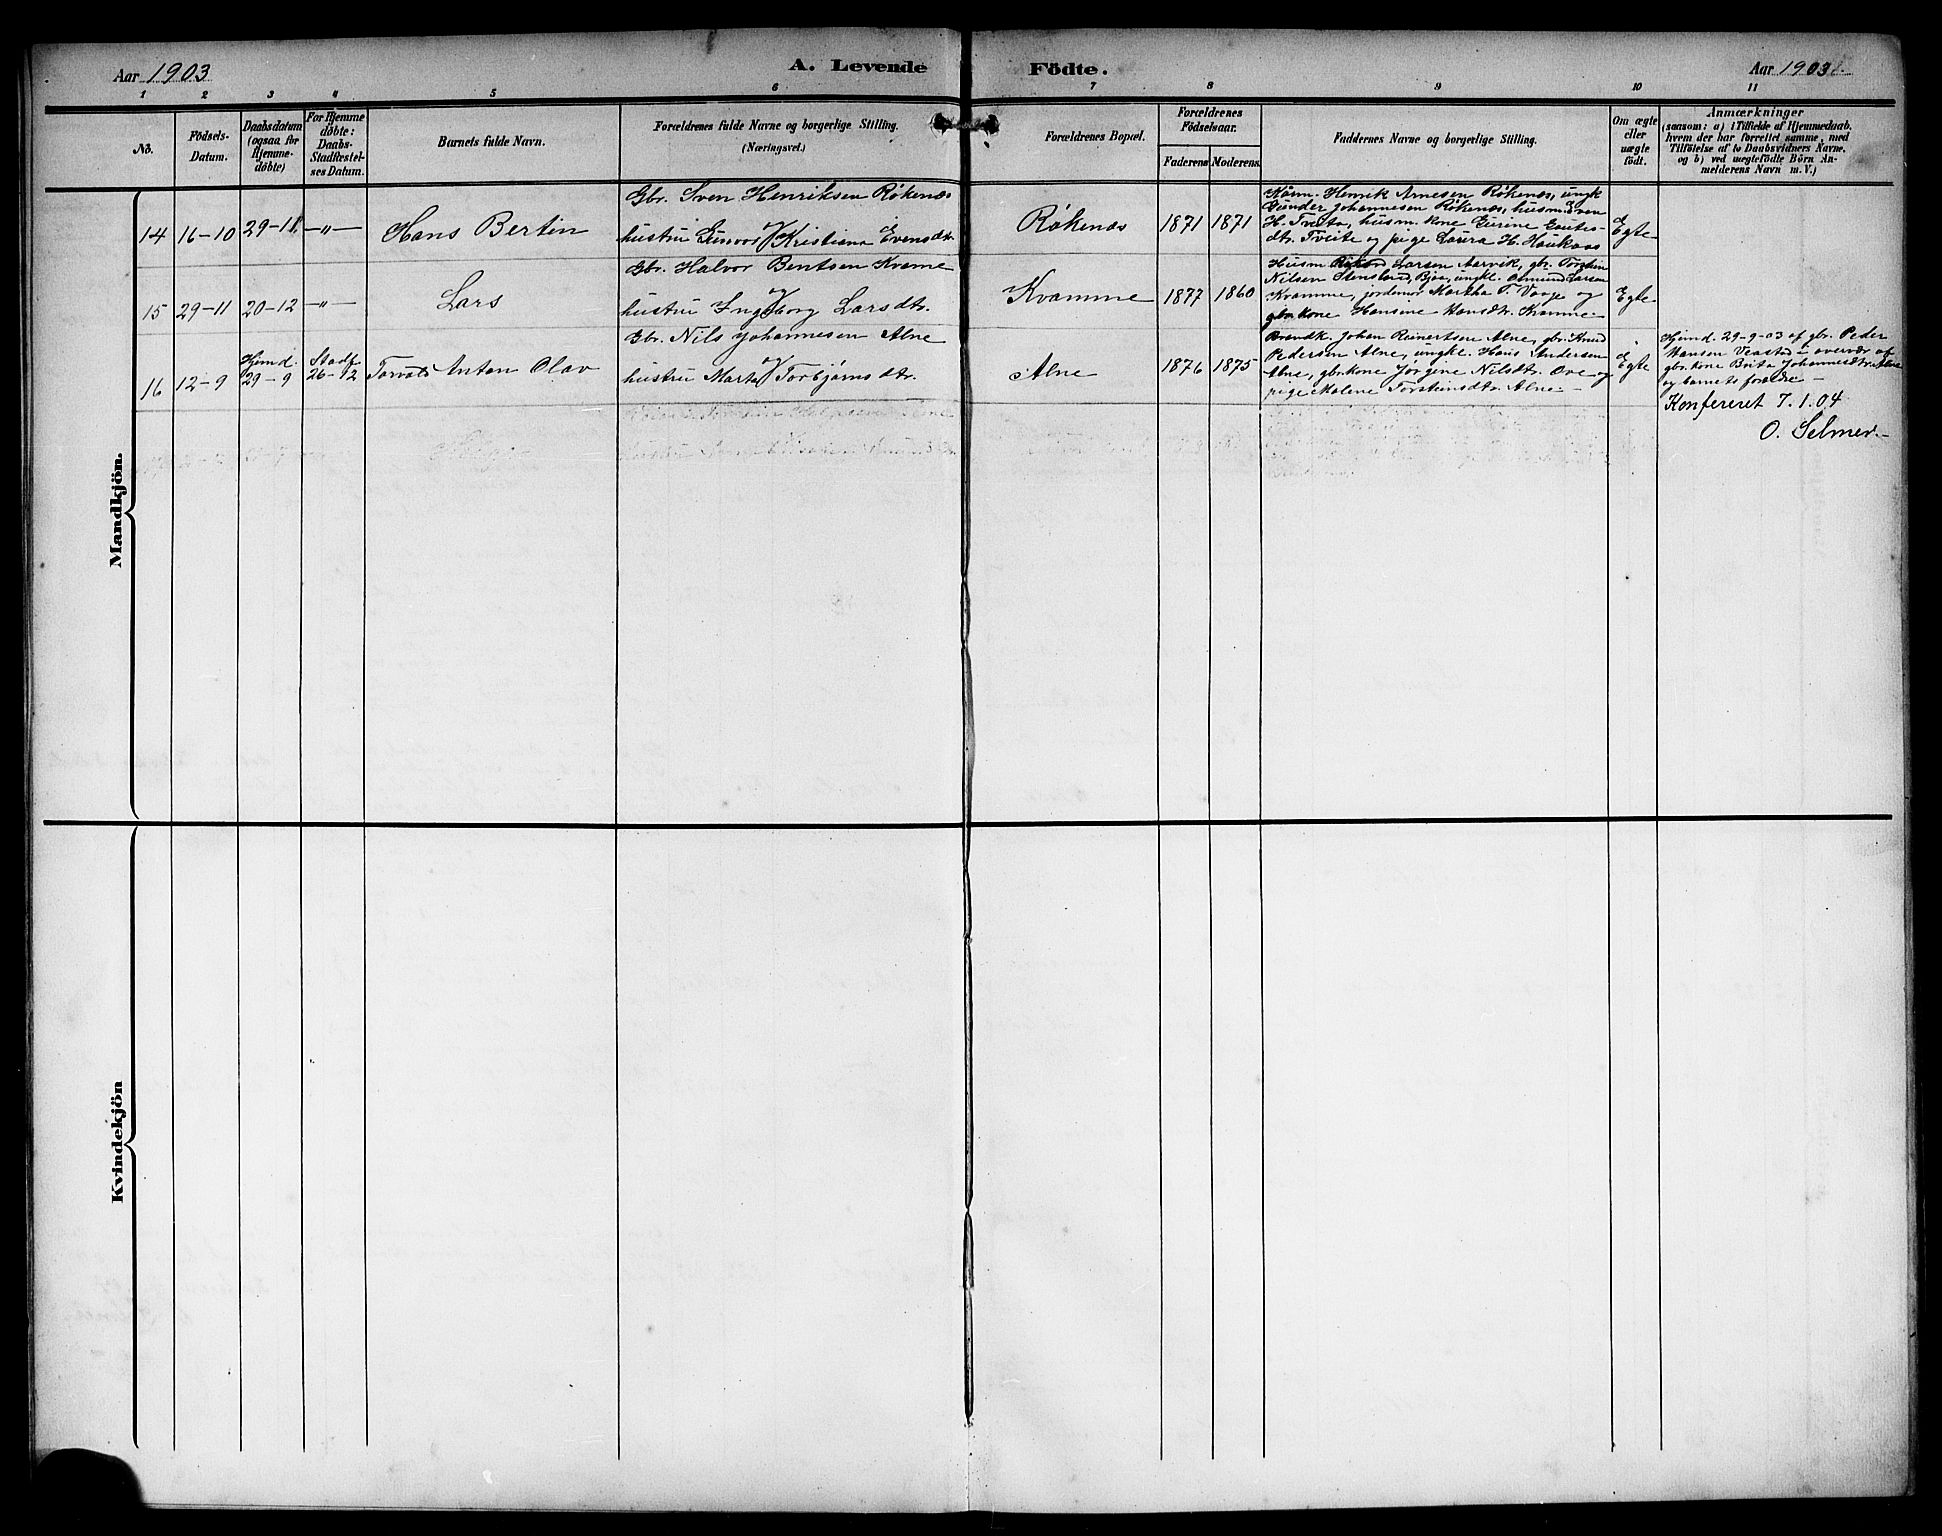 Aar 1903
A. Levende Födte.
Aar 1903
1 2 3 4 5 6 7 8 9 10 11
No.
Födsels-Datum.
Daabsdatum (ogsaa for Hjemme-döbte)
For Hjemme döbte: Daabs-Stadfæstel-ses Datum.
Barnets fulde Navn.
Forældrenes fulde Navne og borgerlige Stilling.
(Næringsvei.)
Forældrenes Bopæl.
Forældrenes Födselsaar.
Faderens Moderens.
Faddernes Navne og borgerlige Stilling.
Om ægte eller uægte födt.
Anmærkninger
(saasom: a) i Tilfælde af Hjemmedaab,
hvem der har forrettet samme, med
Tilföielse af to Daabsvidners Navne,
og b) ved uægtefödte Börn An-
melderens Navn m. V.)
Mandkjön.
14 16-10 29-11 -"- Hans Bertin
Gbr. Sven Henriksen Røkenæs
og
hustru Gunvor Kristiana Evensdtr.
Røkenæs 1871 1871
Kårm. Henrik Arnesen Røkenæs, ungk
Gunder Johannesen Røkenæs, husm. Sven
H. Tveita, husm. kone Gurine Gautes-
dtr. Tveite og pige Laura H. Haukaas
Egte
15 29-11 20-12 -"- Lars
Gbr. Halvor Bentsen Kvame
og
hustru Ingeborg Larsdtr.
Kvamme 1877 1860
Husm Larsen Aarvik, gbr. Torstein
Nilsen Stensland, Bjoa, ungk. Osmund Larsen
Kvamme, jordemor Martha T. Vaage og
gbr.kone Hansine Hansdtr. Kvamme-
Egte
16 12-9 Hjmd. 29-9 Stadf. 26-12 Torvald Anton Olav
Gbr. Nils Johannesen Alne
og
hustru Marta Torbjørnsdtr.
Alne 1876 1875
Brandk. Johan Reinertsen Alne, gbr. Knud
Pedersen Alne, ungk. Hans Andersen
Alne, gbr.kone Jørgine Nilsdtr. Ove og
pige Malene Torsteinsdtr. Alne-
Egte
Hjmd. 29-9-03 af gbr. Peder
Hansen Veastad i overvær af
gbr.kone Brita Johannesdtr. Alne
og barnets forældre -
Konfereret 7.1.04
O. Selmer.-
Kvindekjön